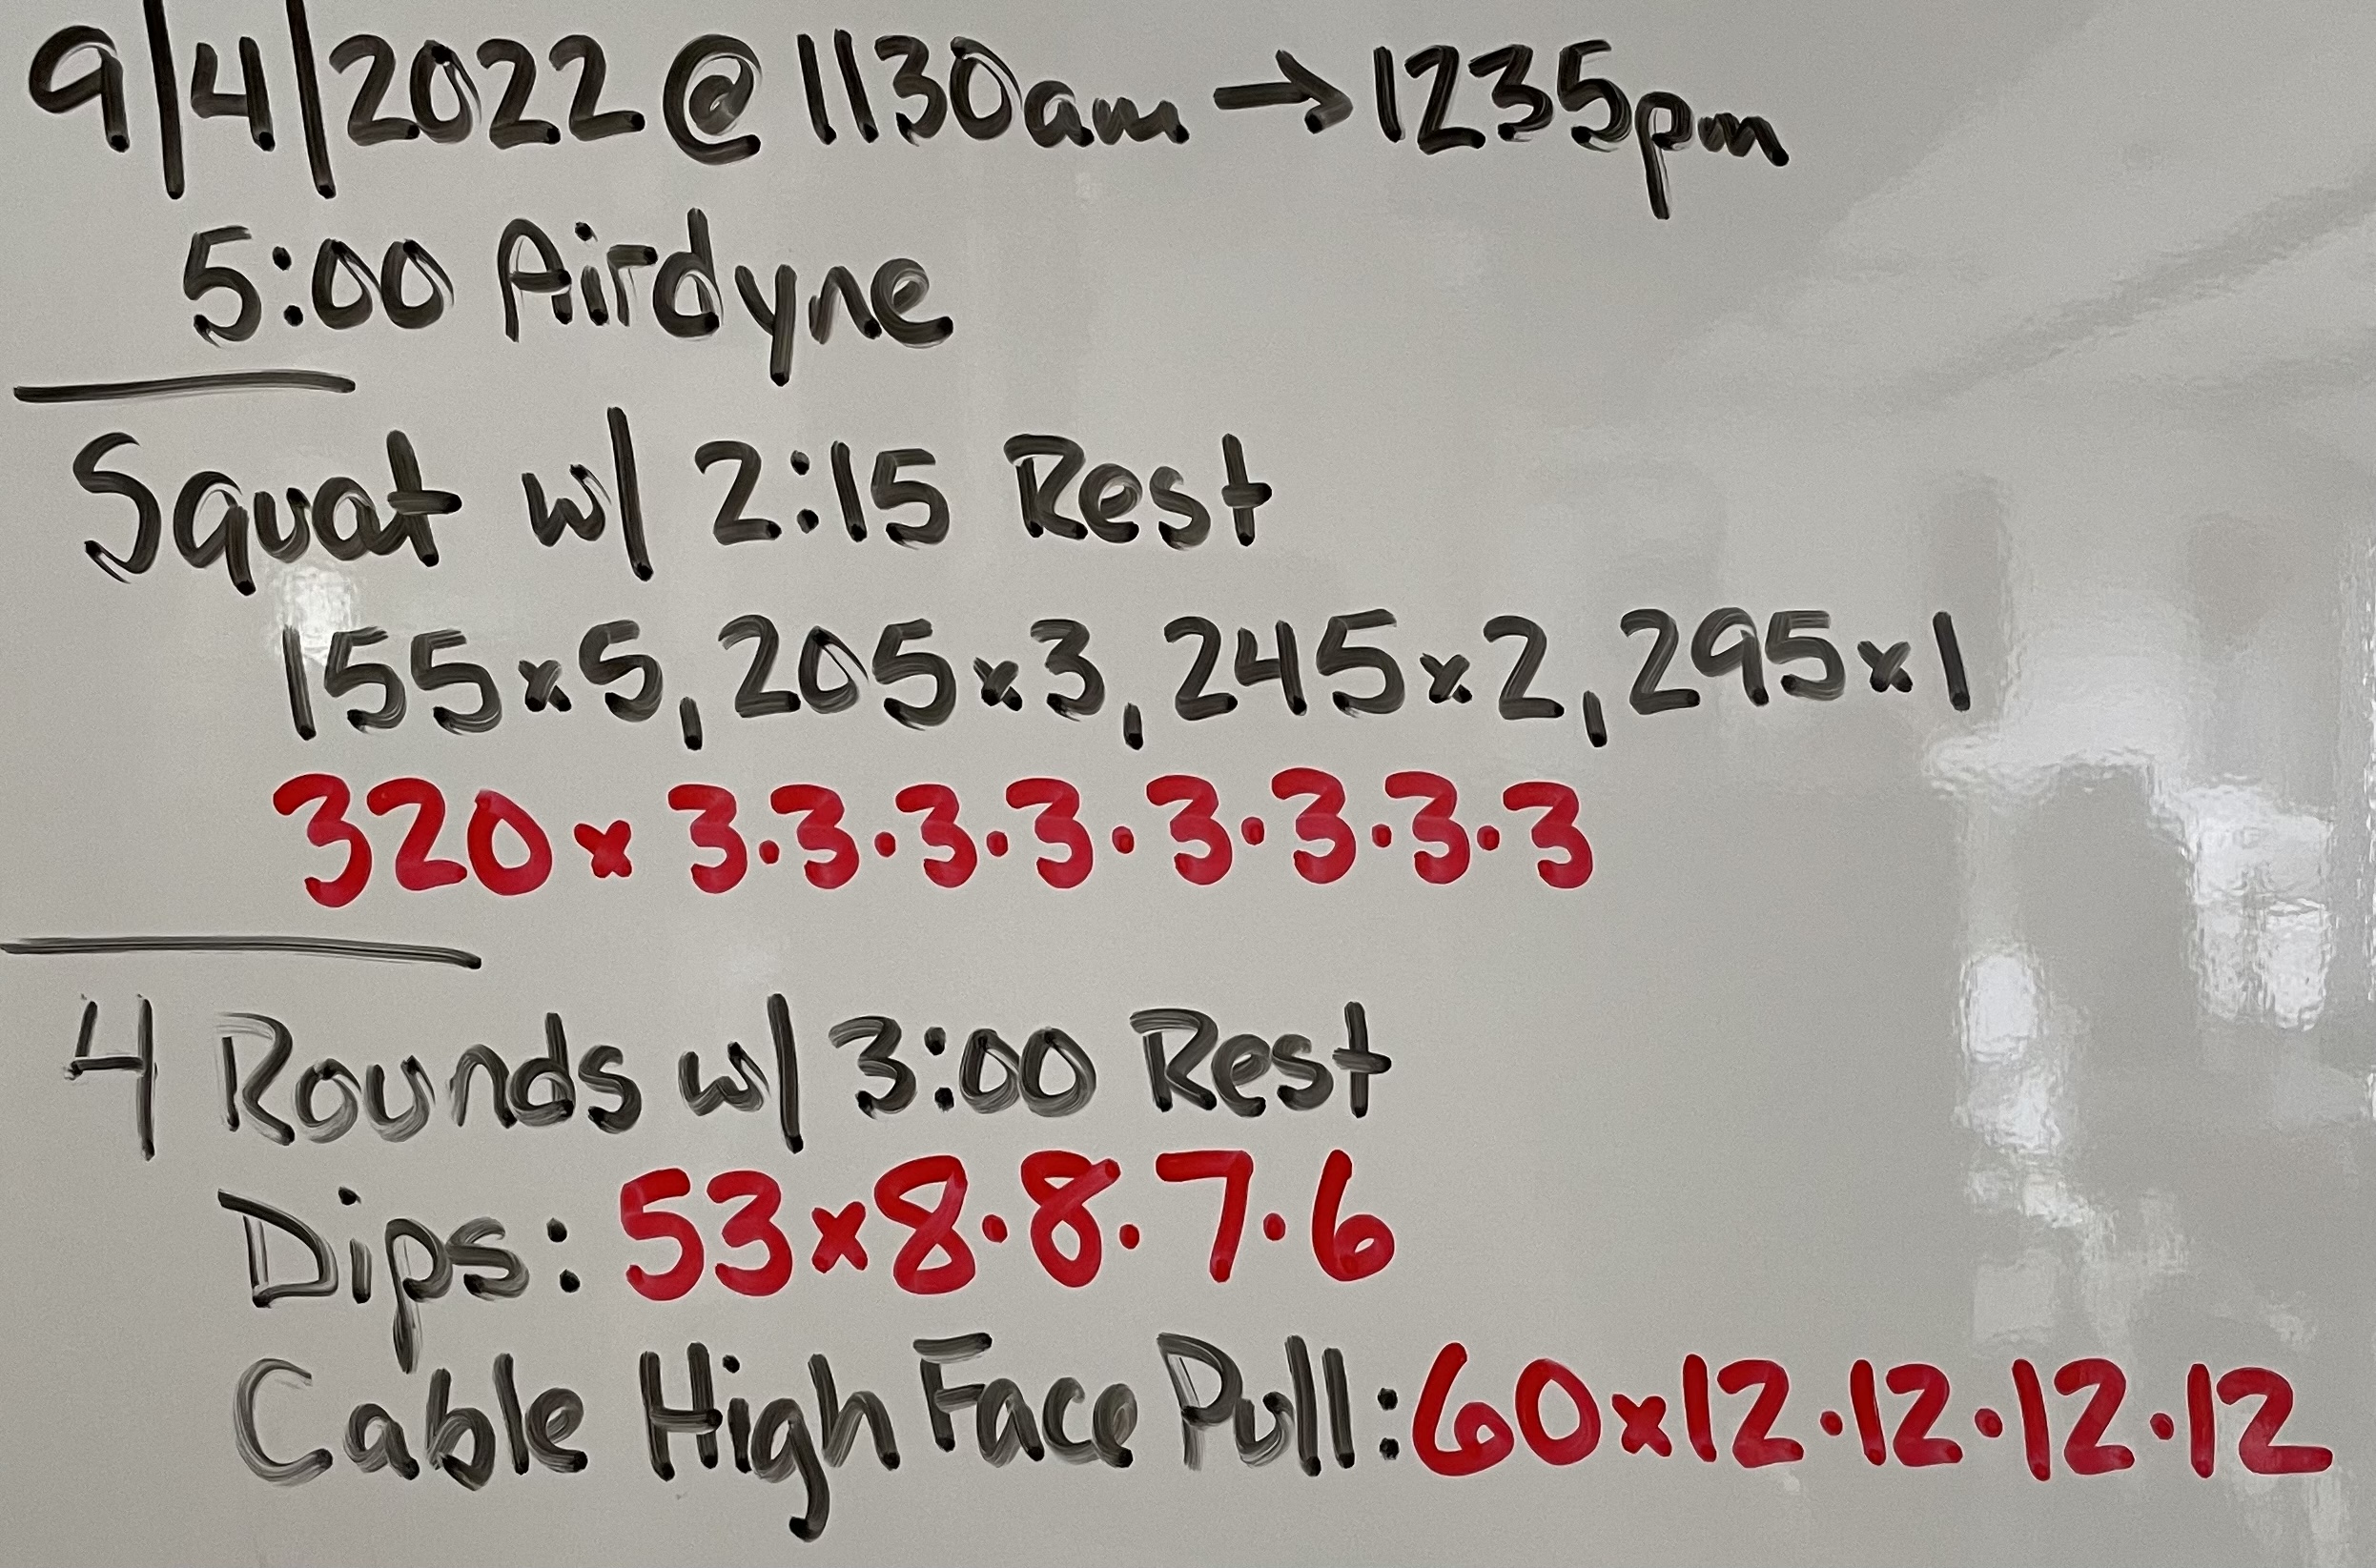 9/4/2022 @ 1130am → 1235pm
5:00 Airdyne
Squat w/ 2:15 Rest
155x5, 205x3, 245x2, 295x1
320x 3·3·3·3·3·3·3·3
4 Rounds w/ 3:00 Rest
Dips: 53x8·8·7·6
Cable High Face Pull: 60x12·12·12·12